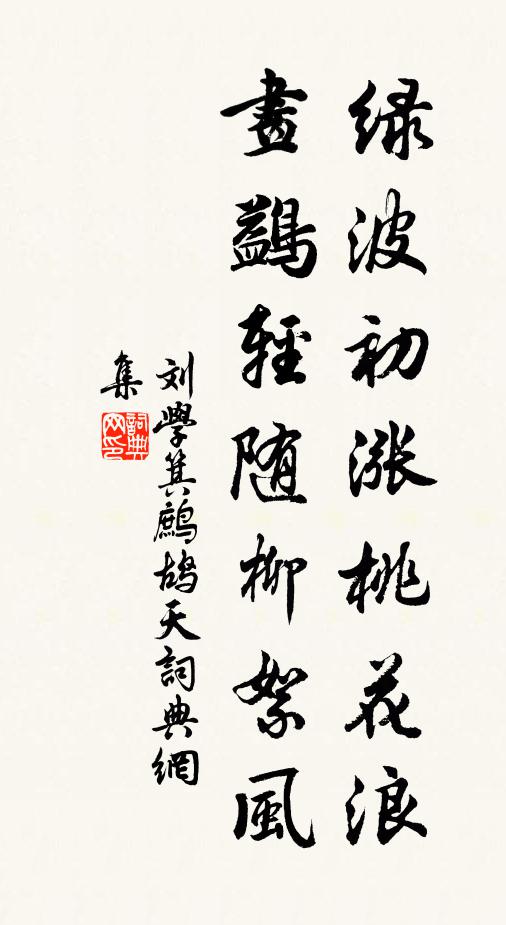 绿波初涨桃花浪
畫鷁輕随柳絮風
刘學箕鷓鴣天詞典網
集
詞典
网印